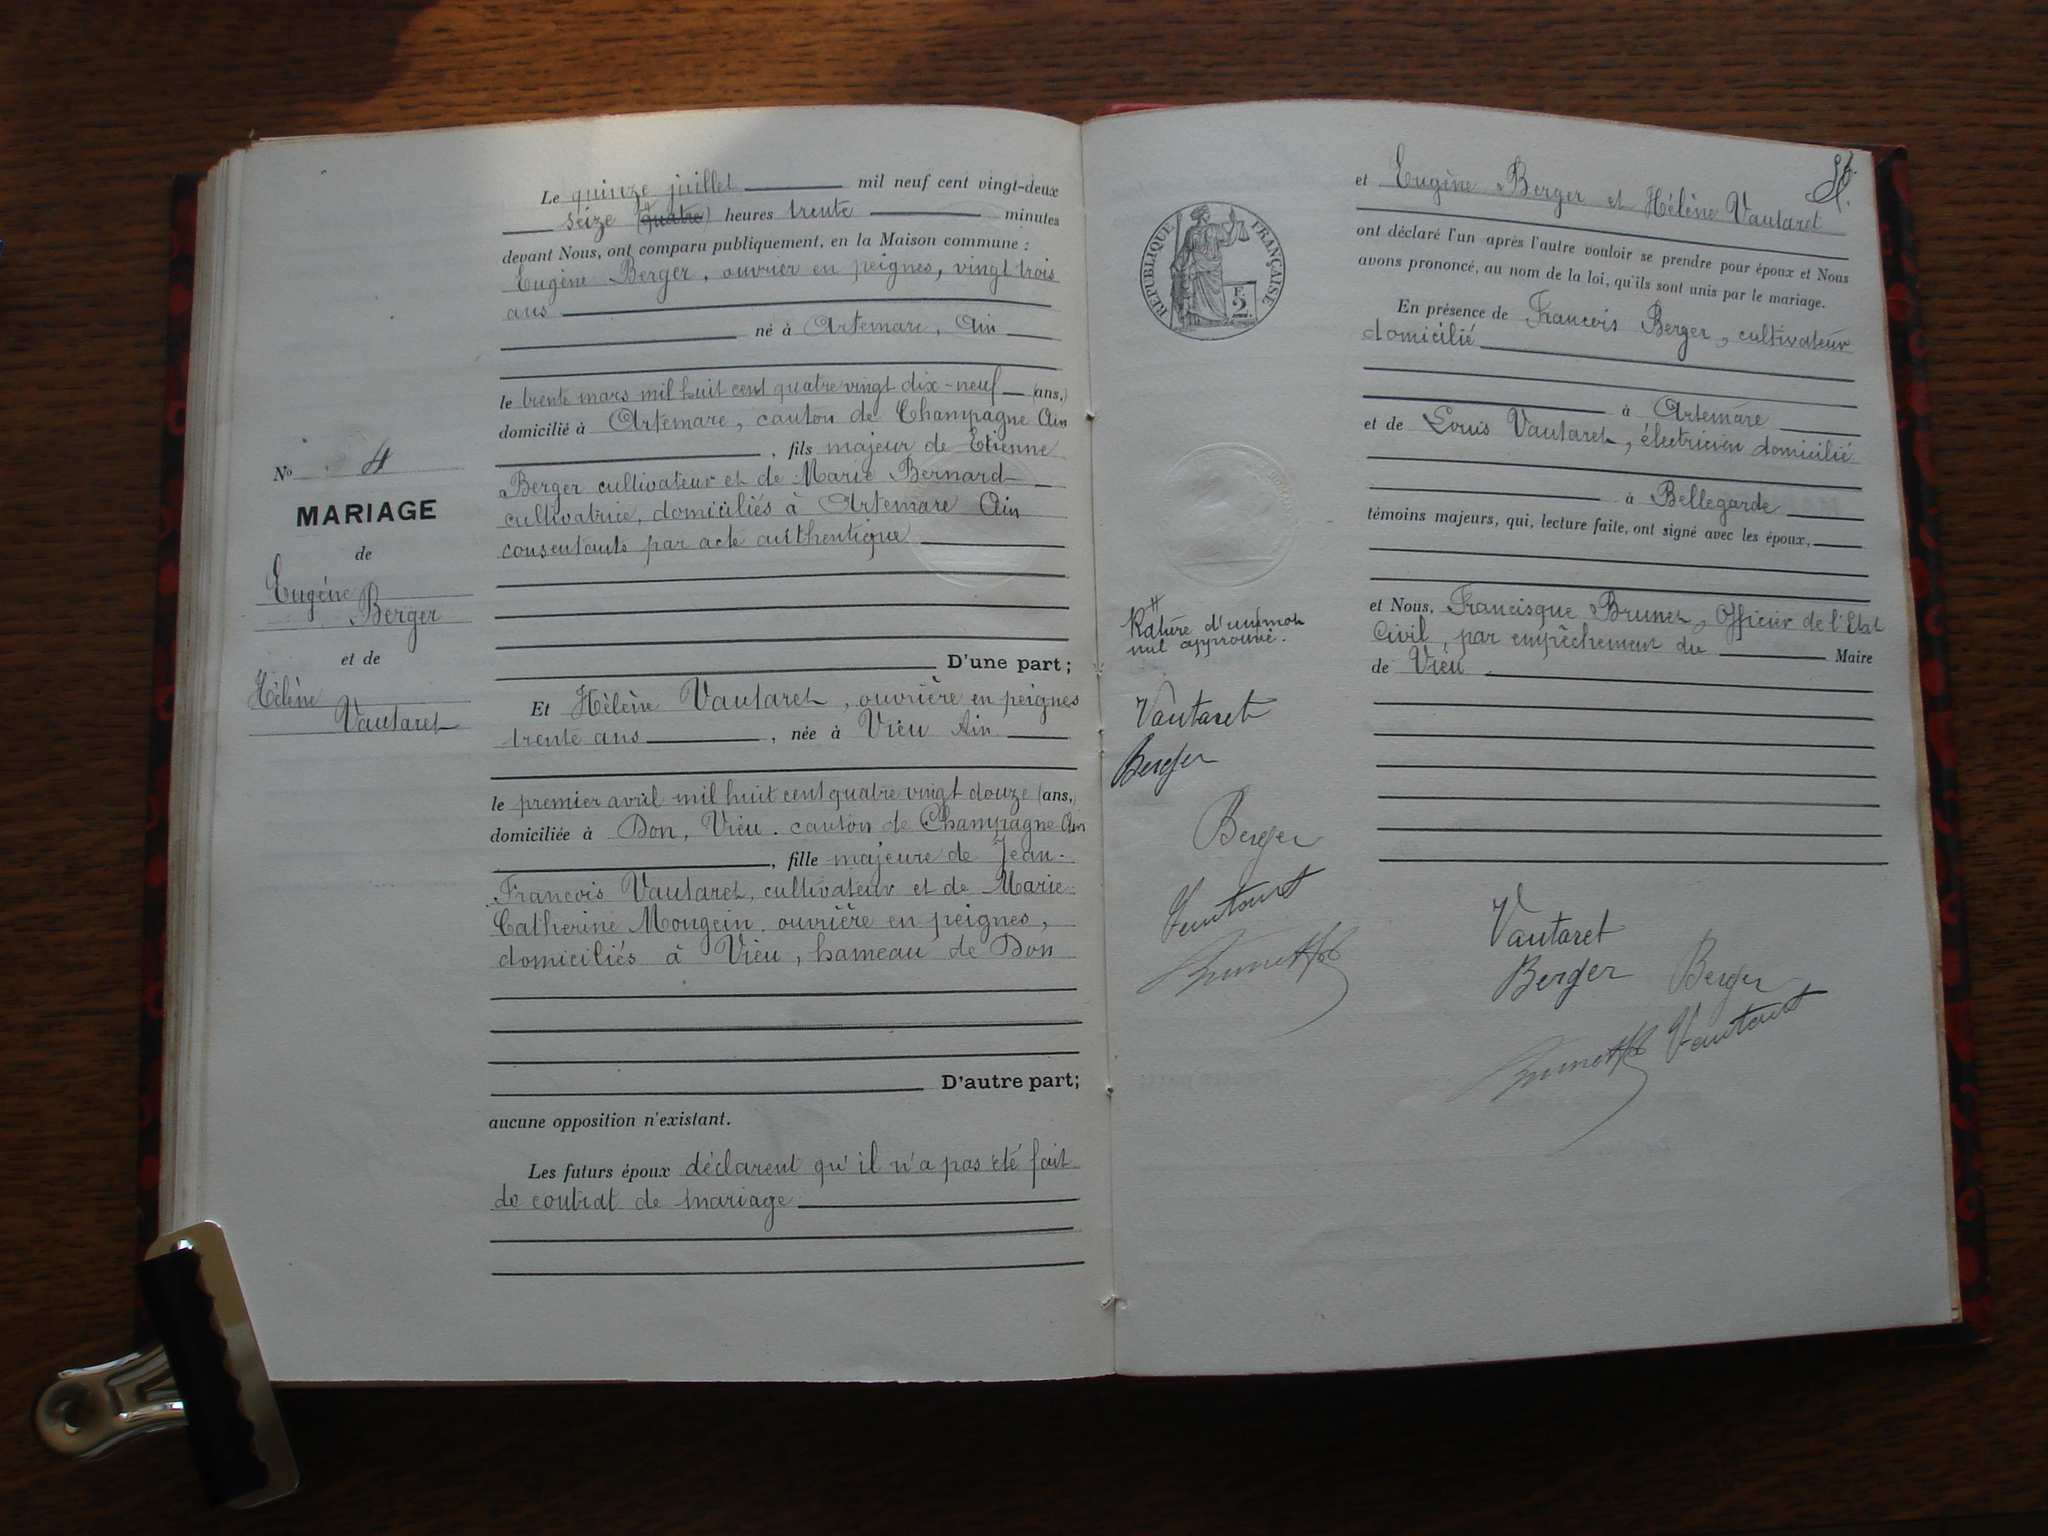 Le quinze juillet mil neuf cent vingt-deux
seize (quatre) heures trente minutes
devant Nous, ont comparu publiquement, en la Maison commune :
Eugène Berger, ouvrier en peignes, vingt trois
ans
né à Artemare, Ain
le trente mars mil huit cent quatre vingt dix-neuf (ans,)
domicilié à Artemare, canton de Champagne Ain
, fils majeur de Etienne
Berger cultivateur et de Marie Bernard
cultivatrice, domiciliés à Artemare Ain
consentants par acte authentique
D'une part;
No 4
MARIAGE
de
Eugène
Berger
et de
Hélène
Vautaret
Et Hélène Vautaret, ouvrière en peignes
trente ans, née à Vieu Ain
le premier avril mil huit cent quatre vingt douze (ans,)
domiciliée à Don, Vieu. canton de Champagne Ain
, fille majeure de Jean-
François Vautaret, cultivateur et de Marie
Catherine Mongein. ouvrière en peignes,
domiciliés à Vieu, hameau de Don
D'autre part;
aucune opposition n'existant.
Les futurs époux déclarent qu'il n'a pas été fait
de contrat de mariage
et Eugène Berger et Hélène Vautaret
ont déclaré l'un après l'autre vouloir se prendre pour époux et Nous
avons prononcé, au nom de la loi, qu'ils sont unis par le mariage.
En présence de François Berger, cultivateur
domicilié
à Artemare
et de Louis Vautaret, électricien domicilié
à Bellegarde
témoins majeurs, qui, lecture faite, ont signé avec les époux,
et Nous. Francisque Brunet, Officier de l'Etat
Civil, par empêchement du Maire
de Vieu
RÉPUBLIQUE FRANÇAISE
F.
2.
Rature d'un mot
nul approuvé.
Vautaret
Berger
Berger
Vautaret
Brunet
Vautaret
Berger Berger
Brunet Vautaret